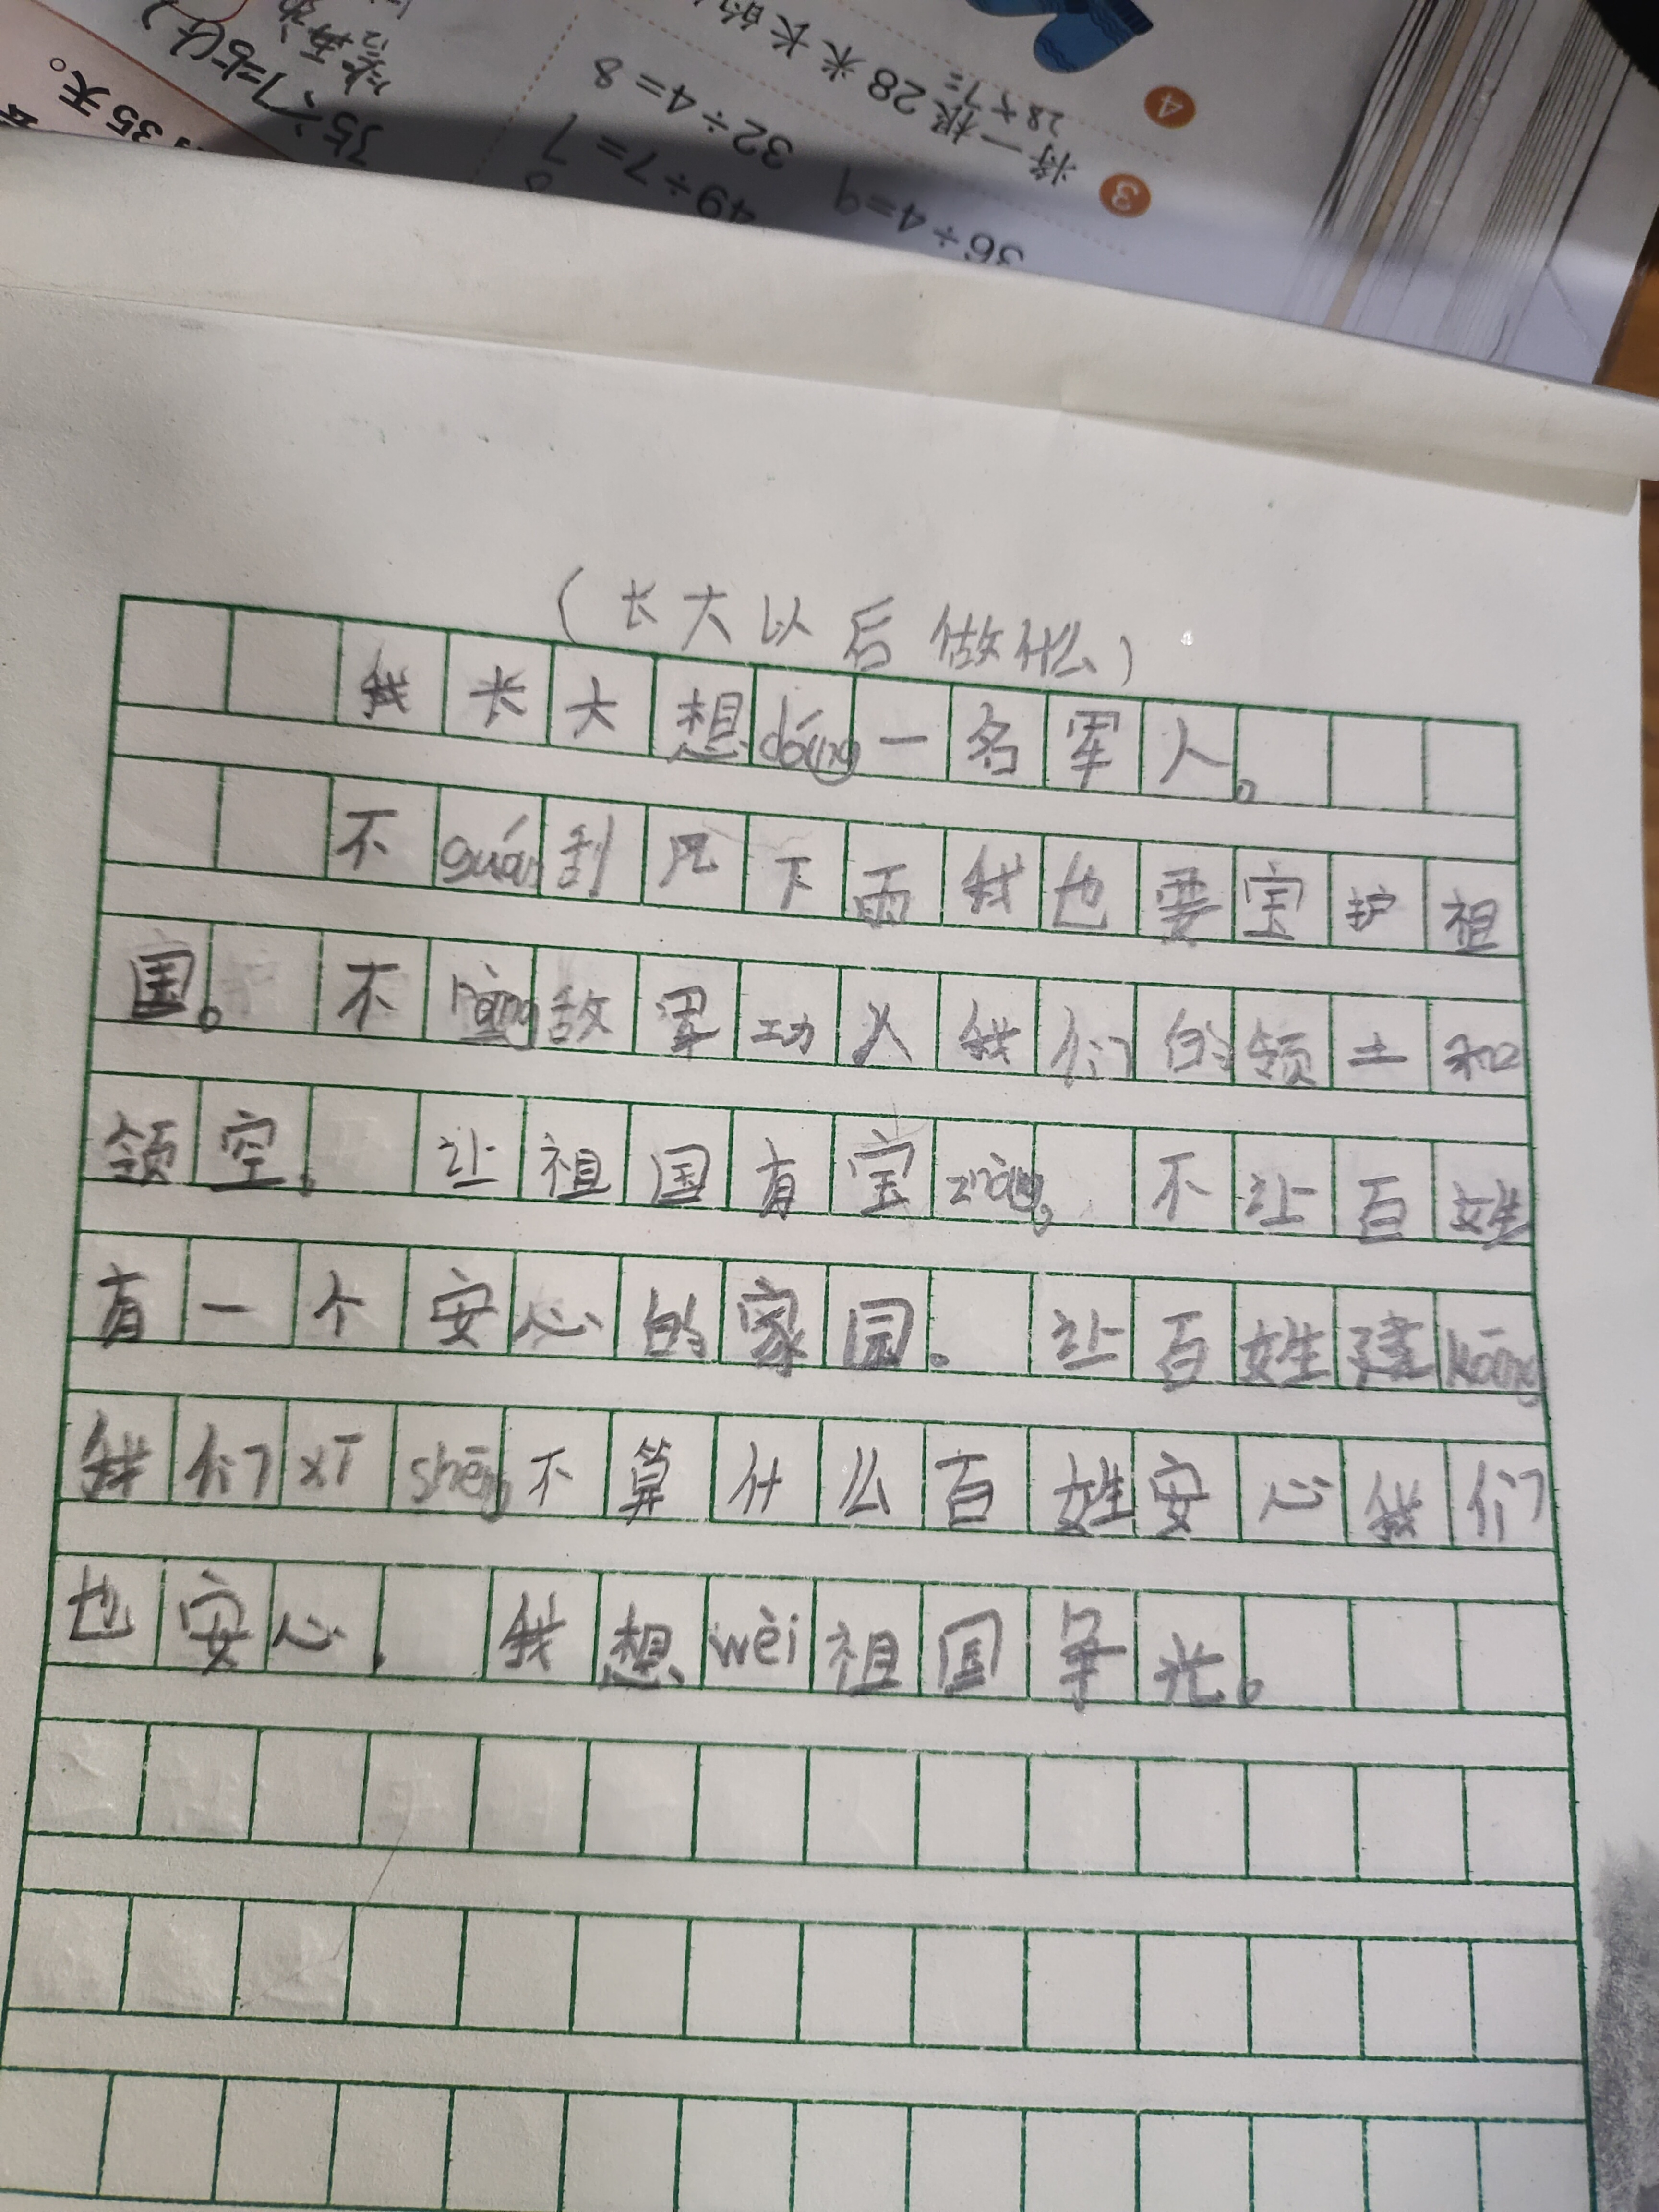 35天。
35÷7=5(六)
49÷7=7
32÷4=8
36÷4=9
4
将一根28米长的
28÷7=
3
(长大以后做什么)
我长大想dáng一名军人。
不guán刮风下雨我也要宝护祖
国。不ràng敌军功入我们的领土和
领空。让祖国有宝zhàng。不让百姓
有一个安心的家园。让百姓建kāng
我们xī shēng不算什么百姓安心我们
也安心。我想wèi祖国争光。